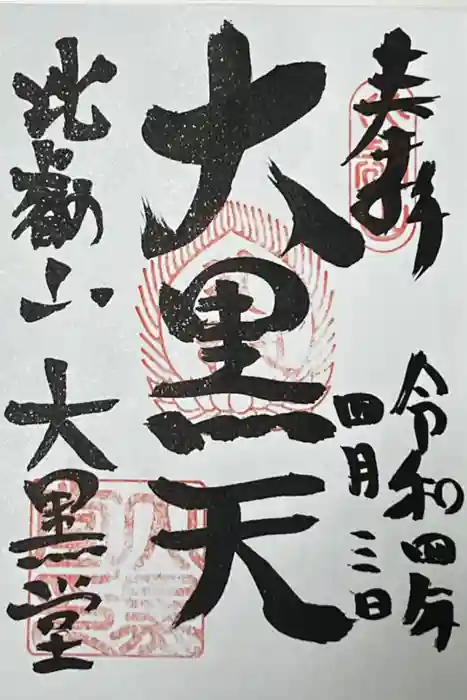 奉拝
令和四年
四月三日
大黒天
比叡山
大黒堂